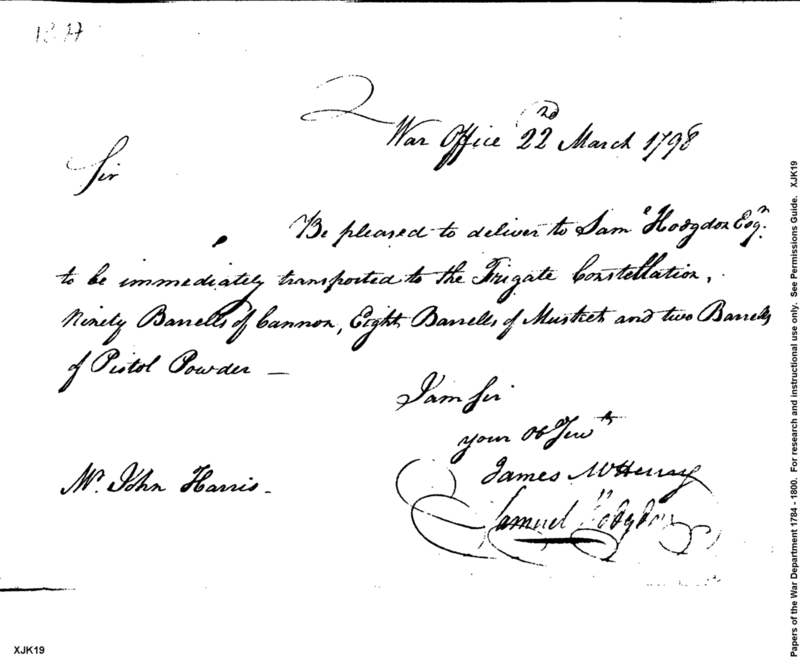 War Office 22nd March 1798
Sir
Be pleased to deliver to Saml Hodgdon Esqr.
to be immediately transported to the Frigate Constellation,
Ninety Barrells of Cannon, Eight Barrells of Musket and two Barrells
of Pistol Powder —
I am Sir
your Ob Servt
James McHenry
Mr. John Harris.
Samuel Hodgdon
Papers of the War Department 1784 - 1800. For research and instructional use only. See Permissions Guide. XJK19
XJK19